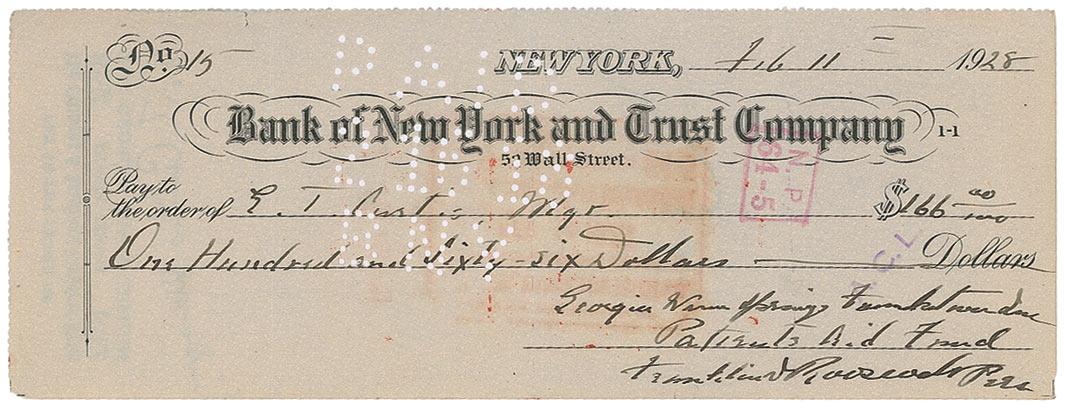 No. 15
NEW YORK, Feb 11 1928
Bank of New York and Trust Company 1-1
52 Wall Street.
N.P.
61-5
Pay to
the order of E. T. Curtis, Mgr. $166 00/100
One Hundred and Sixty-six Dollars Dollars
Georgia Warm Springs Foundation Inc
Patients Aid Fund
Franklin D Roosevelt Pres